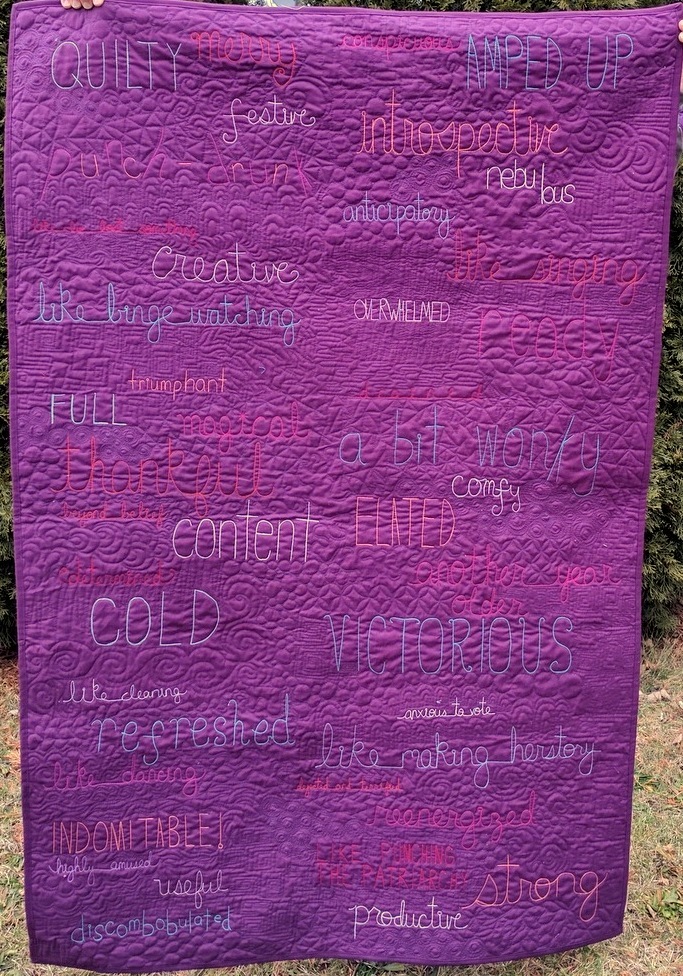 QUILTY
merry
festive
punch-drunk
creative
like binge watching
triumphant
FULL
magical
thankful
beyond betrayed
content
determined
COLD
like cleaning
refreshed
like dancing
INDOMITABLE!
highly amused
useful
discombobulated
conspicuous
AMPED UP
introspective
nebulous
anticipatory
like singing
OVERWHELMED
ready
a bit wonky
comfy
ELATED
another year
older
VICTORIOUS
anxious to vote
like making herstory
dejected and terrified
reenergized
LIKE PUNCHING
THE PATRIARCHY
strong
productive